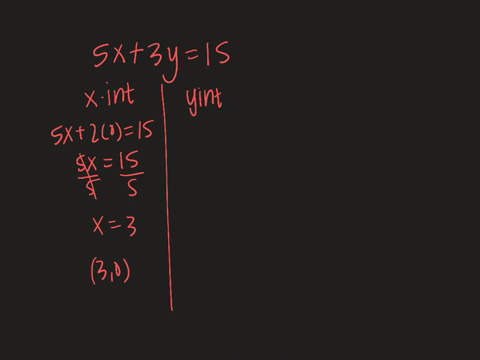 5x+3y=15
x·int
yint
5x+2(0)=15
5x/5 = 15/5
x=3
(3,0)